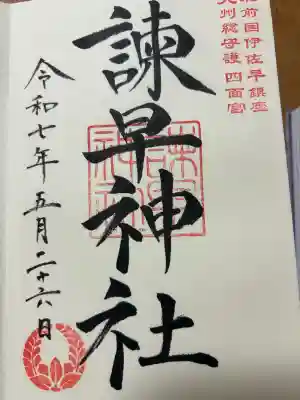 肥前国伊佐早鎮座
九州総守護四面宮
諫早神社
令和七年五月二十六日